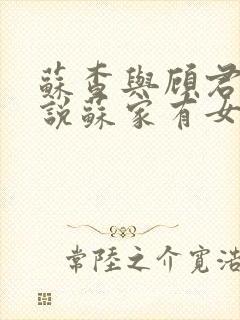 蘇杳與顧君
說蘇家有女
常陸之介寬浩